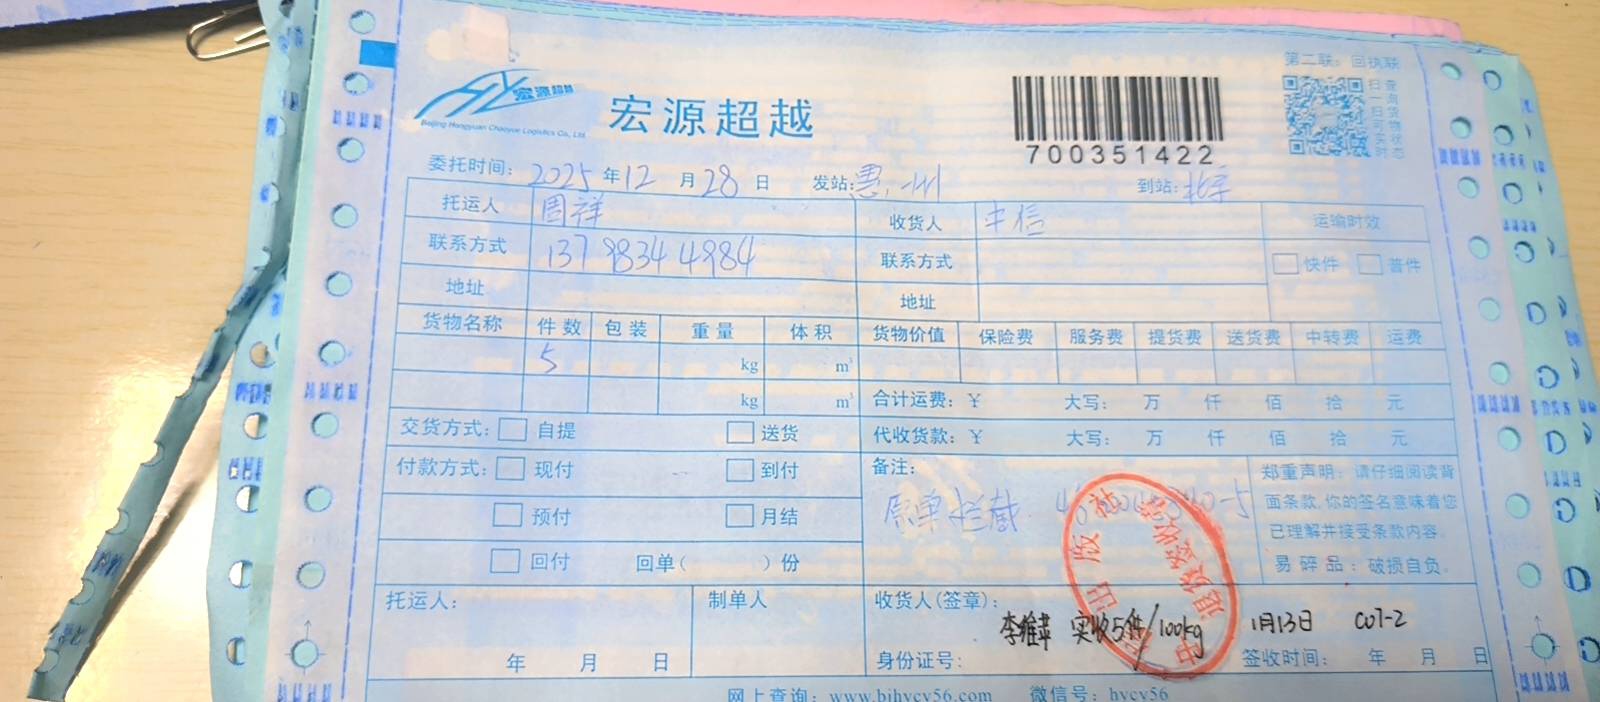 第二联：回执联
宏源超越
Beijing Hongyuan Chaoyue Logistics Co., Ltd.
宏源超越
700351422
扫一扫可实时
查询货物状态
委托时间：2025年12月28日 发站：惠州 到站：北京
托运人 周祥 收货人 中信 运输时效
联系方式 13798344984 联系方式 快件 普件
地址 地址
货物名称 件数 包装 重量 体积 货物价值 保险费 服务费 提货费 送货费 中转费 运费
5 kg m³
kg m³ 合计运费：￥ 大写： 万 仟 佰 拾 元
交货方式： 自提 送货 代收货款：￥ 大写： 万 仟 佰 拾 元
付款方式： 现付 到付 备注： 郑重声明：请仔细阅读背
预付 月结 原单拦截 面条款，你的签名意味着您
已理解并接受条款内容。
回付 回单（ ）份 易碎品：破损自负。
托运人： 制单人 收货人（签章）：
李维苹 实收5件/100kg 1月13日 C07-2
年 月 日 身份证号： 签收时间： 年 月 日
网上查询：www.bjhycy56.com 微信号：hycy56